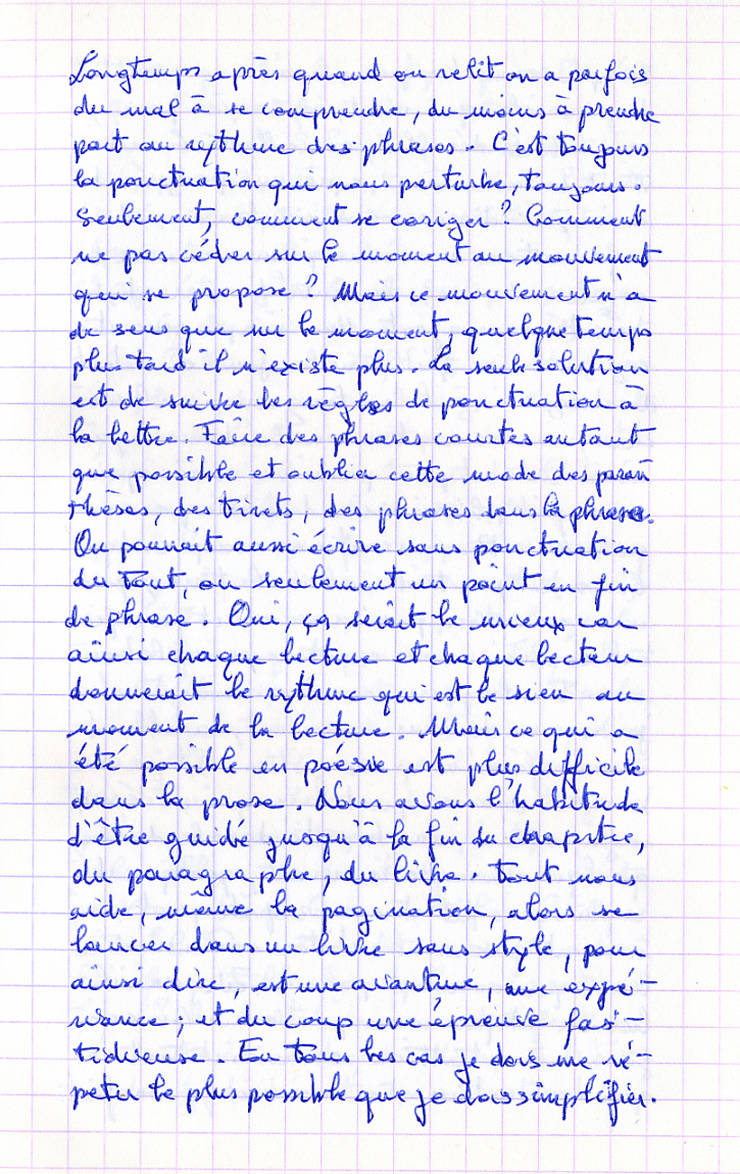 Longtemps après quand on relit on a parfois
du mal à se comprendre, du moins à prendre
part au rythme des phrases. C'est toujours
la ponctuation qui nous perturbe, toujours.
Seulement, comment se coriger ? Comment
ne pas céder sur le moment au mouvement
qui se propose ? Mais ce mouvement n'a
de sens que sur le moment, quelque temps
plus tard il n'existe plus. La seule solution
est de suivre les règles de ponctuation à
la lettre. Faire des phrases courtes autant
que possible et oublier cette mode des paran
thèses, des tirets, des phrases dans la phrase.
On pourrait aussi écrire sans ponctuation
du tout, ou seulement un point en fin
de phrase. Oui, ça serait le mieux car
ainsi chaque lecture et chaque lecteur
donnerait le rythme qui est le sien au
moment de la lecture. Mais ce qui a
été possible en poésie est plus difficile
dans la prose. Nous avons l'habitude
d'être guidé jusqu'à la fin du chapitre,
du paragraphe, du livre. Tout nous
aide, même la pagination, alors se
lancer dans un livre sans style, pour
ainsi dire, est une avanture, une expé-
riance ; et du coup une épreuve fas-
tidieuse. En tous les cas je dois me ré-
peter le plus possible que je dois simplifier.